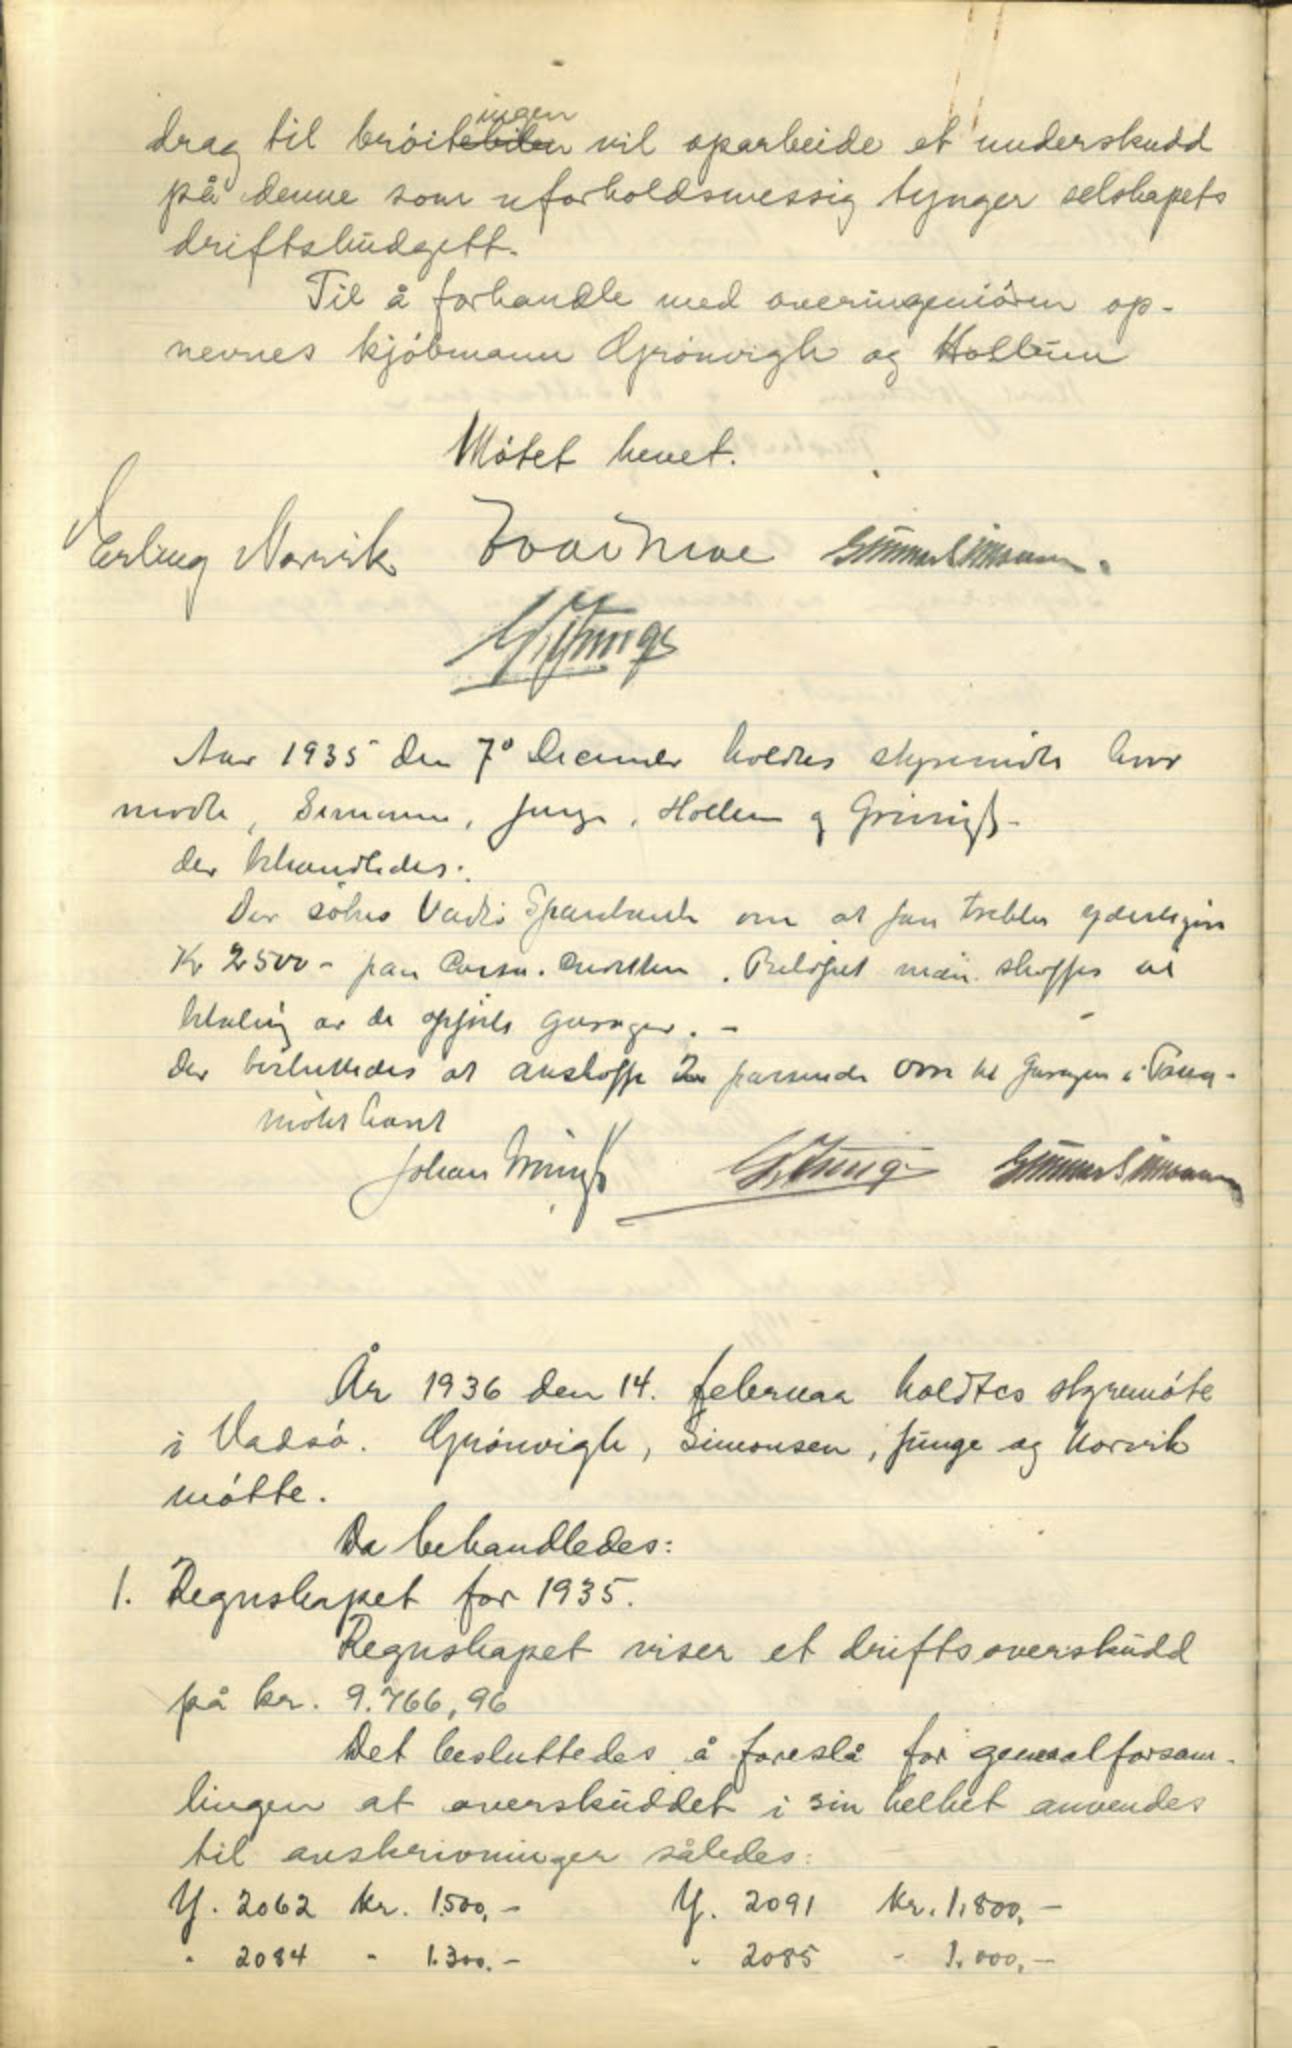 drag til bróitebilen ingen vil oparbeide et underskudd
på denne som uforholdsmessig tynger selskapets
driftsbudgett.
Til å forhandle med overingeniören op-
nevnes kjóbmann Grönvigh og Hollum
Mótet hevet.
Erling Norvik Gunnar Simonsen.
G. Junge
Aar 1935 den 7º December holdtes styremöte hvor
mödte, Simonsen, Junge, Hollum og Grönvigh -
der behandledes:
Der sökes Vadsö Sparebank om at faa trekke yderligere
Kr 2500 - paa Casse. Creditten. Belöpet maa skaffes til
betaling av de opförte garager. -
Der besluttedes at anskaffe 2 passende Ovne til Garagen i Tana -
Mötet hævet
Johan Grönvigh G. Junge Gunnar Simonsen
År 1936 den 14. februar holdtes styremóte
i Vadsó. Grónvigh, Simonsen, Junge og Norvik
mótte.
Da behandledes:
1. Regnskapet for 1935.
Regnskapet viser et driftsoverskudd
på kr. 9.766,96
Det besluttedes å foreslå for generalforsam-
lingen at overskuddet i sin helhet anvendes
til avskrivninger således:
Y. 2062 kr. 1.500,- Y. 2091 kr. 1.800,-
" 2084 " 1.300,- " 2085 " 1.000,-